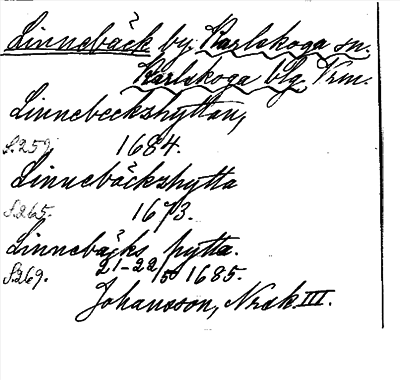 Linnebäck by. Karlskoga sn.
Karlskoga blg. Vrm.
Linnebeckshyttan,
S. 259. 1684.
Linnebäckshytta
S. 265. 1673.
Linnebäcks hytta.
S. 269. 21-22/50 1685.
Johansson, Nrsk III.